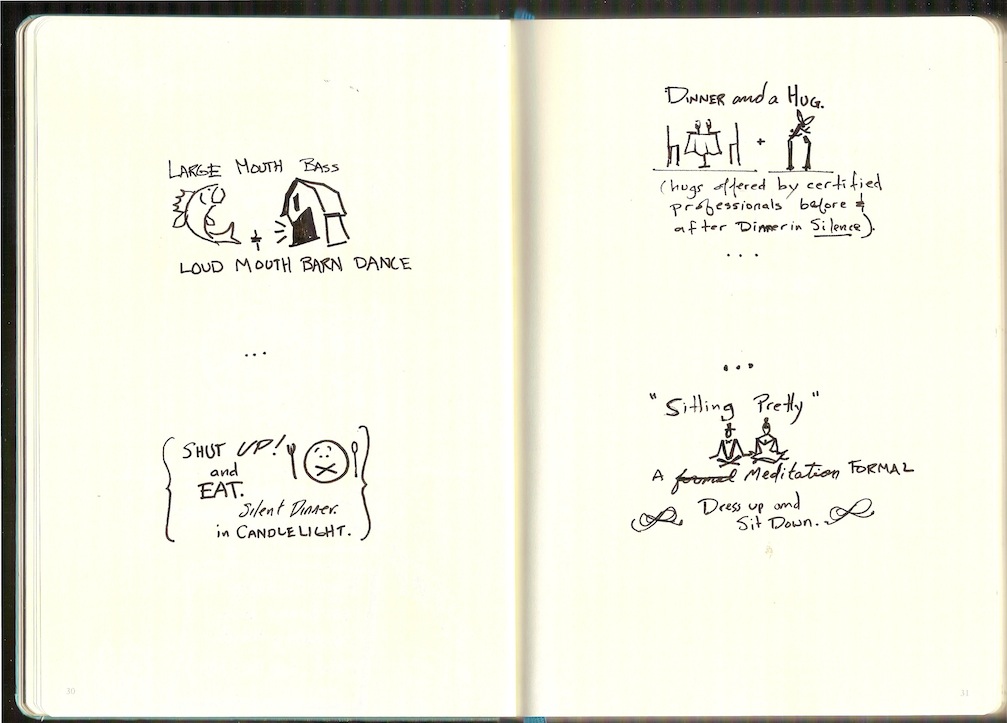 LARGE MOUTH BASS
+
LOUD MOUTH BARN DANCE
...
{ SHUT UP!
and
EAT.
Silent Dinner.
in CANDLELIGHT. }
30
DINNER and a HUG.
+
(hugs offered by certified
professionals before +
after Dinner in Silence).
...
...
"Sitting Pretty"
A formal Meditation FORMAL
Dress up and
Sit Down.
31